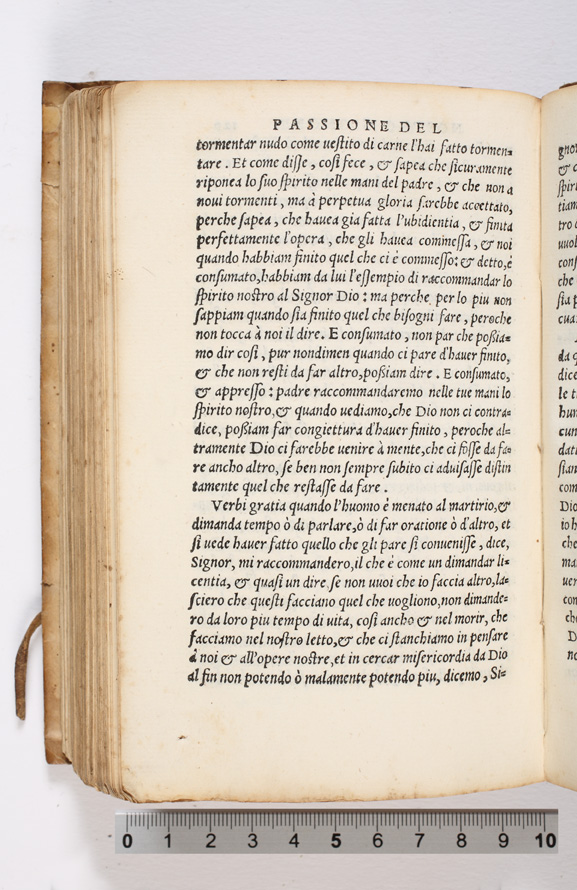 PASSIONE DEL
tormentar nudo come ueſtito di carne l'hai fatto tormen=
tare. Et come diſſe, coſi fece, & ſapea che ſicuramente
riponea lo ſuo ſpirito nelle mani del padre, & che non a
noui tormenti, ma à perpetua gloria ſarebbe accettato,
perche ſapea, che hauea gia fatta l'ubidientia, & finita
perfettamente l'opera, che gli hauea commeſſa, & noi
quando habbiam finito quel che ci è commeſſo: & detto, è
conſumato, habbiam da lui l'eſſempio di raccommandar lo
ſpirito noſtro al Signor Dio: ma perche per lo piu non
ſappiam quando ſia finito quel che biſogni fare, peroche
non tocca à noi il dire. E conſumato, non par che poßia=
mo dir coſi, pur nondimen quando ci pare d'hauer finito,
& che non reſti da far altro, poßiam dire. E conſumato,
& appreſſo: padre raccommandaremo nelle tue mani lo
ſpirito noſtro, & quando uediamo, che Dio non ci contra=
dice, poßiam far congiettura d'hauer finito, peroche al=
tramente Dio ci farebbe uenire à mente, che ci foſſe da fa=
re ancho altro, ſe ben non ſempre ſubito ci aduiſaſſe diſtin
tamente quel che reſtaſſe da fare.
Verbi gratia quando l'huomo è menato al martirio, &
dimanda tempo ò di parlare, ò di far oratione ò d'altro, et
ſi uede hauer fatto quello che gli pare ſi conueniſſe, dice,
Signor, mi raccommandero, il che è come un dimandar li=
centia, & quaſi un dire, ſe non uuoi che io faccia altro, la=
ſciero che queſti facciano quel che uogliono, non dimande=
ro da loro piu tempo di uita, coſi ancho & nel morir, che
facciamo nel noſtro letto, & che ci ſtanchiamo in penſare
à noi & all'opere noſtre, et in cercar miſericordia da Dio
al fin non potendo ò malamente potendo piu, dicemo, Si=
0 1 2 3 4 5 6 7 8 9 10